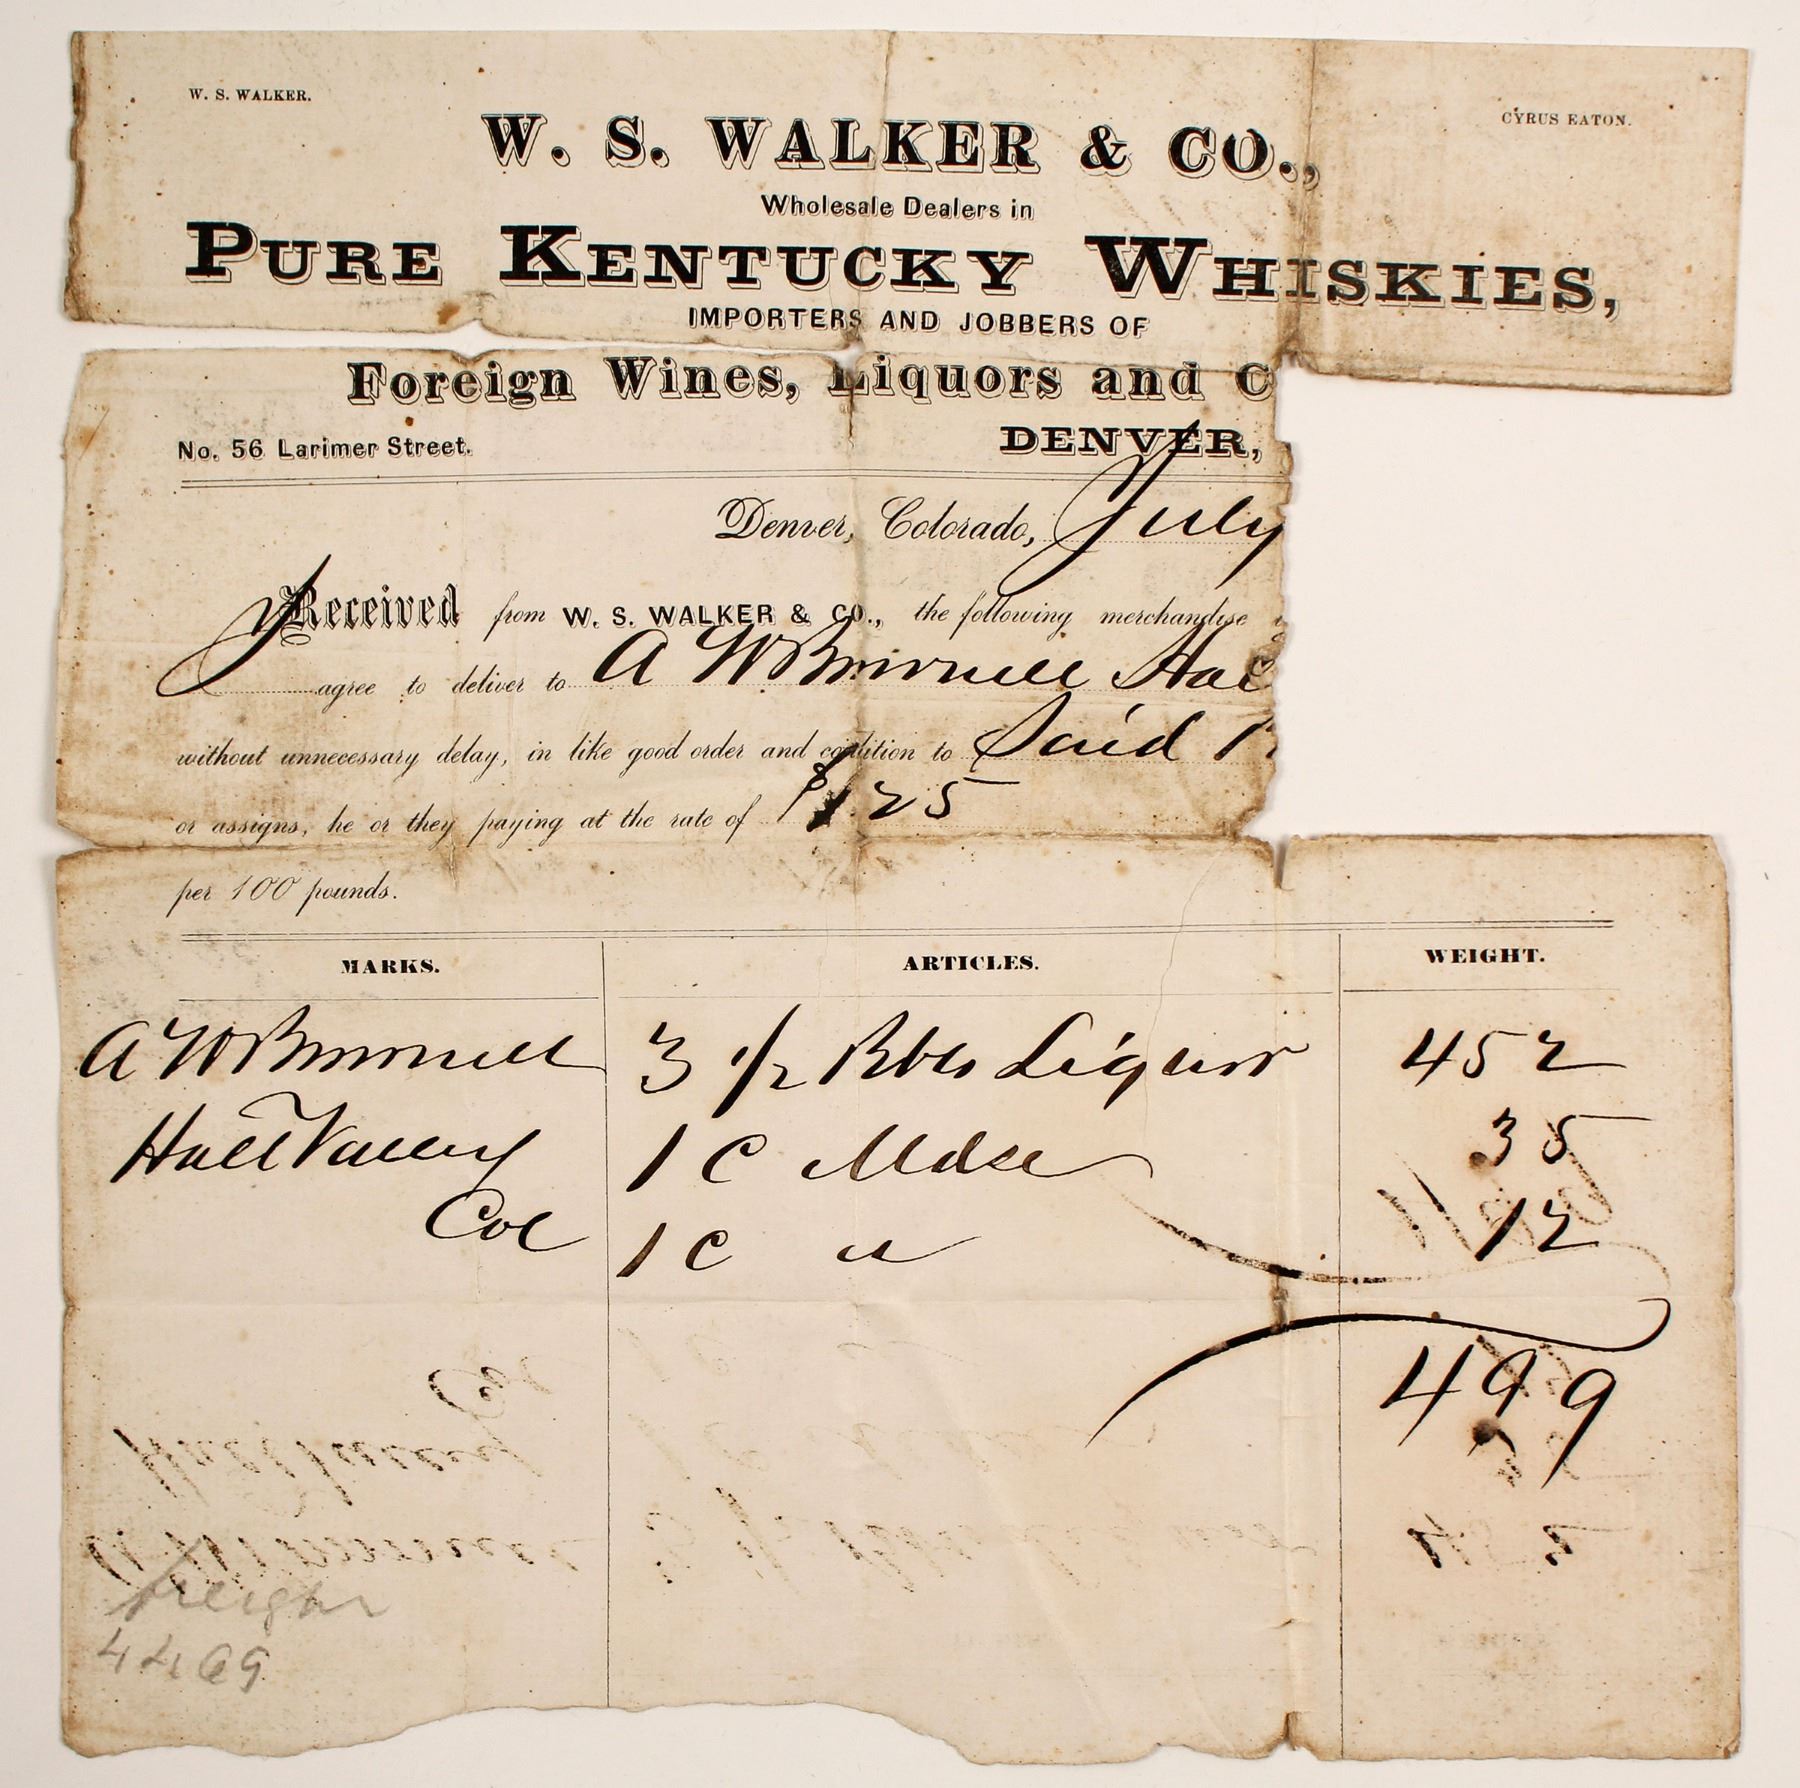 W. S. WALKER.
CYRUS EATON.
W. S. WALKER & CO.,
Wholesale Dealers in
PURE KENTUCKY WHISKIES,
IMPORTERS AND JOBBERS OF
Foreign Wines, Liquors and C
No. 56 Larimer Street. DENVER,
Denver, Colorado, July
Received from W. S. WALKER & CO., the following merchandise
I agree to deliver to A W Brownell Hal
without unnecessary delay, in like good order and condition to Said
or assigns, he or they paying at the rate of $1.25
per 100 pounds.
MARKS. ARTICLES. WEIGHT.
A W Brownell 3 1/2 Bbls Liquor 452
Hall Valley 1 C Mdse 35
Col 1 C " 12
499
freight